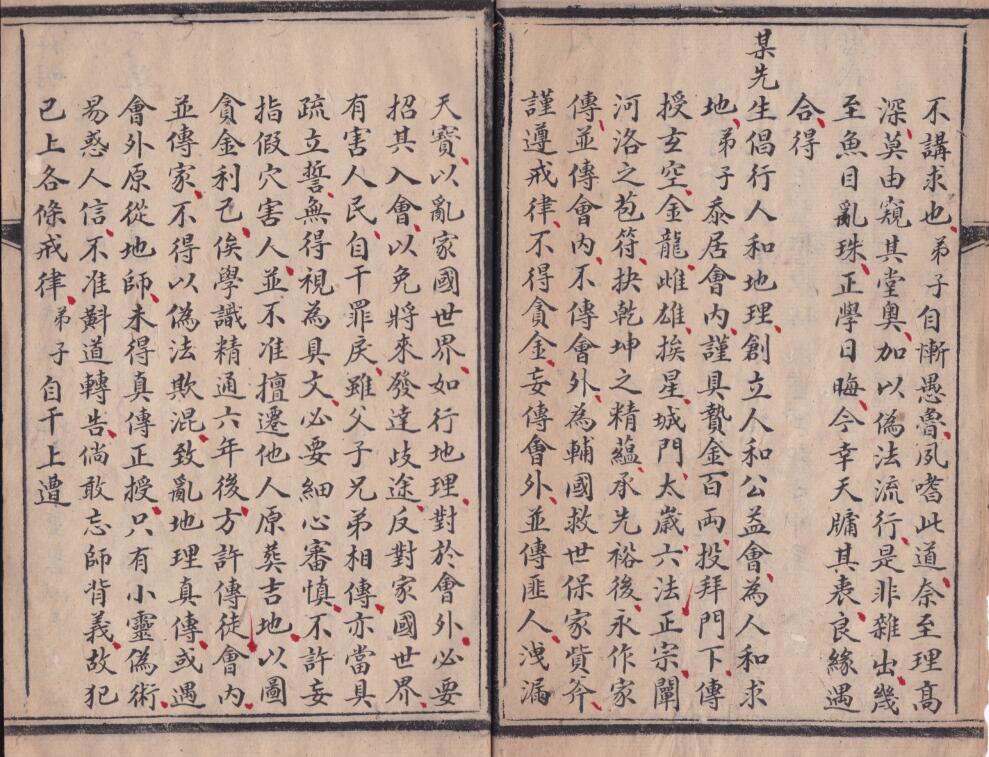 不講求也弟子自慚愚魯夙嗜此道奈至理高
深莫由窺其堂奧加以偽法流行是非雜出幾
至魚目亂珠正學日晦今幸天牖其衷良緣遇
合得
某先生倡行人和地理創立人和公益會為人和求
地弟子忝居會內謹具贄金百両投拜門下傳
授玄空金龍雌雄挨星城門太歲六法正宗闡
河洛之苞符抉乾坤之精蘊承先裕後永作家
傳並傳會內不傳會外為輔國救世保家貲斧
謹遵戒律不得貪金妄傳會外並傳匪人洩漏
天寶以亂家國世界如行地理對於會外必要
招其入會以免將來發達歧途反對家國世界
有害人民自干罪戾雖父子兄弟相傳亦當具
疏立誓無得視為具文必要細心審慎不許妄
指假穴害人並不准擅遷他人原葬吉地以圖
貪金利己俟學識精通六年後方許傳徒會內
並傳家不得以偽法欺混致亂地理真傳或遇
會外原從地師未得真傳正授只有小靈偽術
易惑人信不准斟道轉告倘敢忘師背義故犯
已上各條戒律弟子自干上遭